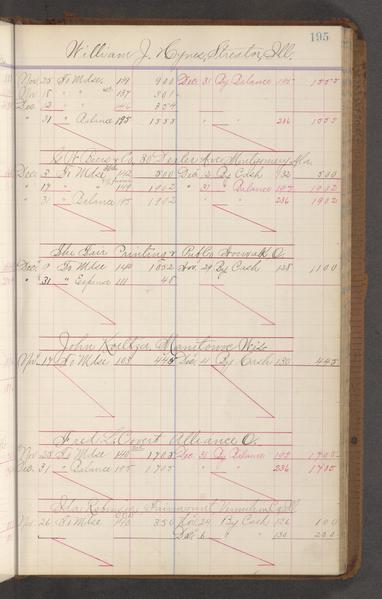 195
William J. Hynes, Streator, Ill.
Nov 25 To Mdse. 149 900 Dec 31 By Balance 195 1555
Nov 18 " " 137 301
Dec 12 " " 146 354
" 31 " Balance 195 1555 " " 236 1555
& Co. 30 Dexter Ave Montgomery Ala.
Dec 3 To Mdse 142 500 Dec 2 By Cash 132 500
" 17 " " 149 1902 " 31 " Balance 195 1902
" 31 " Balance 195 1902 " " 236 1902
The Fair Printing & Pub Co Norwalk O.
Dec 9 To Mdse 144 1052 Nov 29 By Cash 128 1100
" 31 " Expense 111 48
John Koelzer Manitowoc Wis
Nov 14 To Mdse 103 445 Dec 4 By Cash 130 445
Fred L. Covert Alliance O.
Nov 25 To Mdse 140 1705 Dec 31 By Balance 195 1705
Dec 31 " Balance 195 1705 " " 236 1705
Fairmount Vermilion Co Ill
Nov 26 To Mdse 140 350 Nov 24 By Cash 126 100
Dec 6 " " 130 250